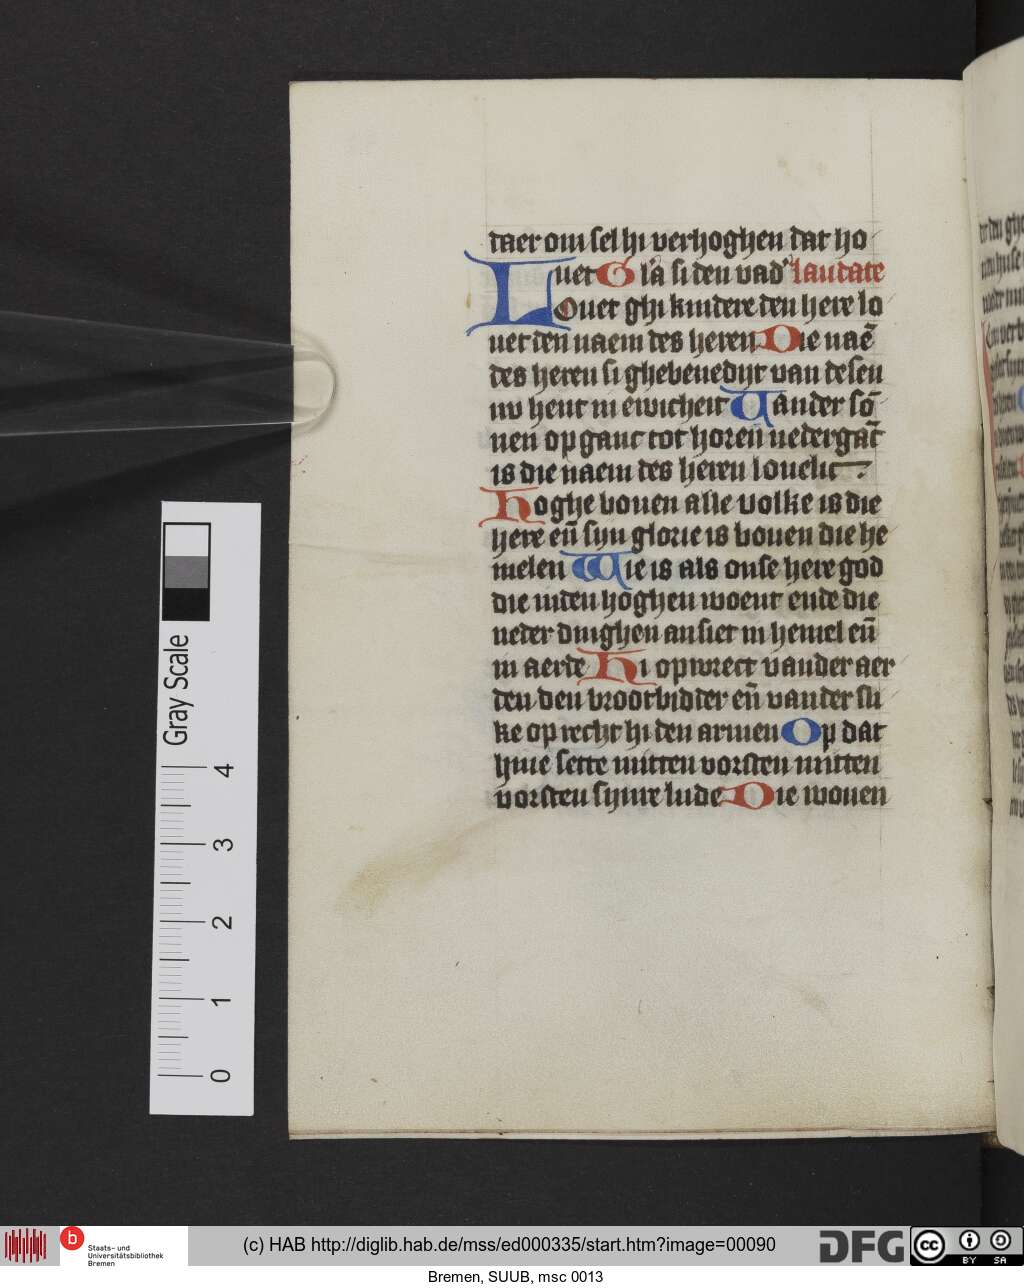 daer om sel hi verhoghen dat ho
uet Glā si den vad' laudate
LOuet ghi kindere den here lo
uet den naem des heren Die naē
des heren si ghebenedijt van desen
nv hent in ewicheit Uander sō
nen opganc tot horen nedergāc
is die naem des heren louelic
Hoghe bouen alle volke is die
here eñ sijn glorie is bouen die he
melen Wie is als onse here god
die inden hoghen woent ende die
neder dinghen ansiet in hemel eñ
in aerde Hi opwrect vander aer
den den nootbidder eñ vander sli
ke op recht hi den armen Op dat
hine sette mitten vorsten mitten
vorsten sijnre lude Die wonen
Gray Scale
4
3
2
1
0
b
Staats- und
Universitätsbibliothek
Bremen
(c) HAB http://diglib.hab.de/mss/ed000335/start.htm?image=00090
DFG
cc
BY
SA
Bremen, SUUB, msc 0013